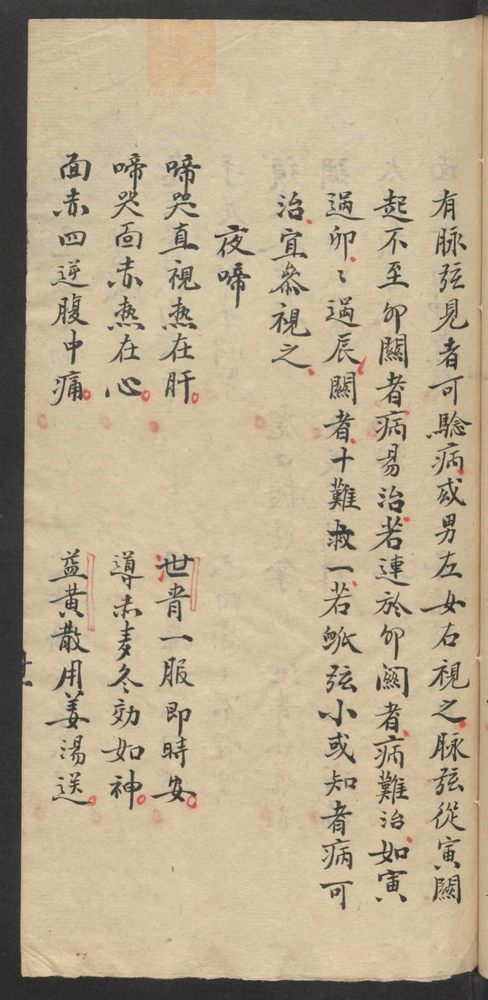 有脉弦見者可驗病或男左女右視之脉弦從寅關
起不至卯關者病易治若連於卯關者病難治如寅
過卯〻過辰關者十難救一若脉弦小或知者病可
治宜叅視之
夜啼
啼哭直視热在肝 世胥一服即時安
啼哭面赤热在心 導赤麦冬効如神
面赤四逆腹中痛 益黃散用姜湯送